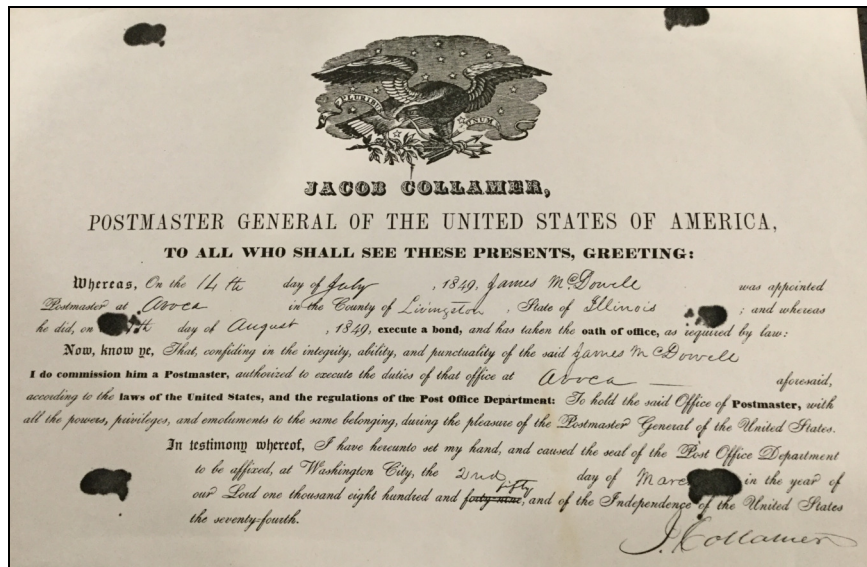 PLURIBUS UNUM
JACOB COLLAMER,
POSTMASTER GENERAL OF THE UNITED STATES OF AMERICA,
TO ALL WHO SHALL SEE THESE PRESENTS, GREETING:
Whereas, On the 14th day of July, 1849, James McDowell was appointed
Postmaster at Avoca in the County of Livingston, State of Illinois ; and whereas
he did, on day of August, 1849, execute a bond, and has taken the oath of office, as required by law:
Now, know ye, That, confiding in the integrity, ability, and punctuality of the said James McDowell
I do commission him a Postmaster, authorized to execute the duties of that office at Avoca aforesaid,
according to the laws of the United States, and the regulations of the Post Office Department: To hold the said Office of Postmaster, with
all the powers, privileges, and emoluments to the same belonging, during the pleasure of the Postmaster General of the United States.
In testimony whereof, I have hereunto set my hand, and caused the seal of the Post Office Department
to be affixed, at Washington City, the 2nd day of in the year of
fifty
our Lord one thousand eight hundred and forty-nine, and of the Independence of the United States
the seventy-fourth.
J. Collamer